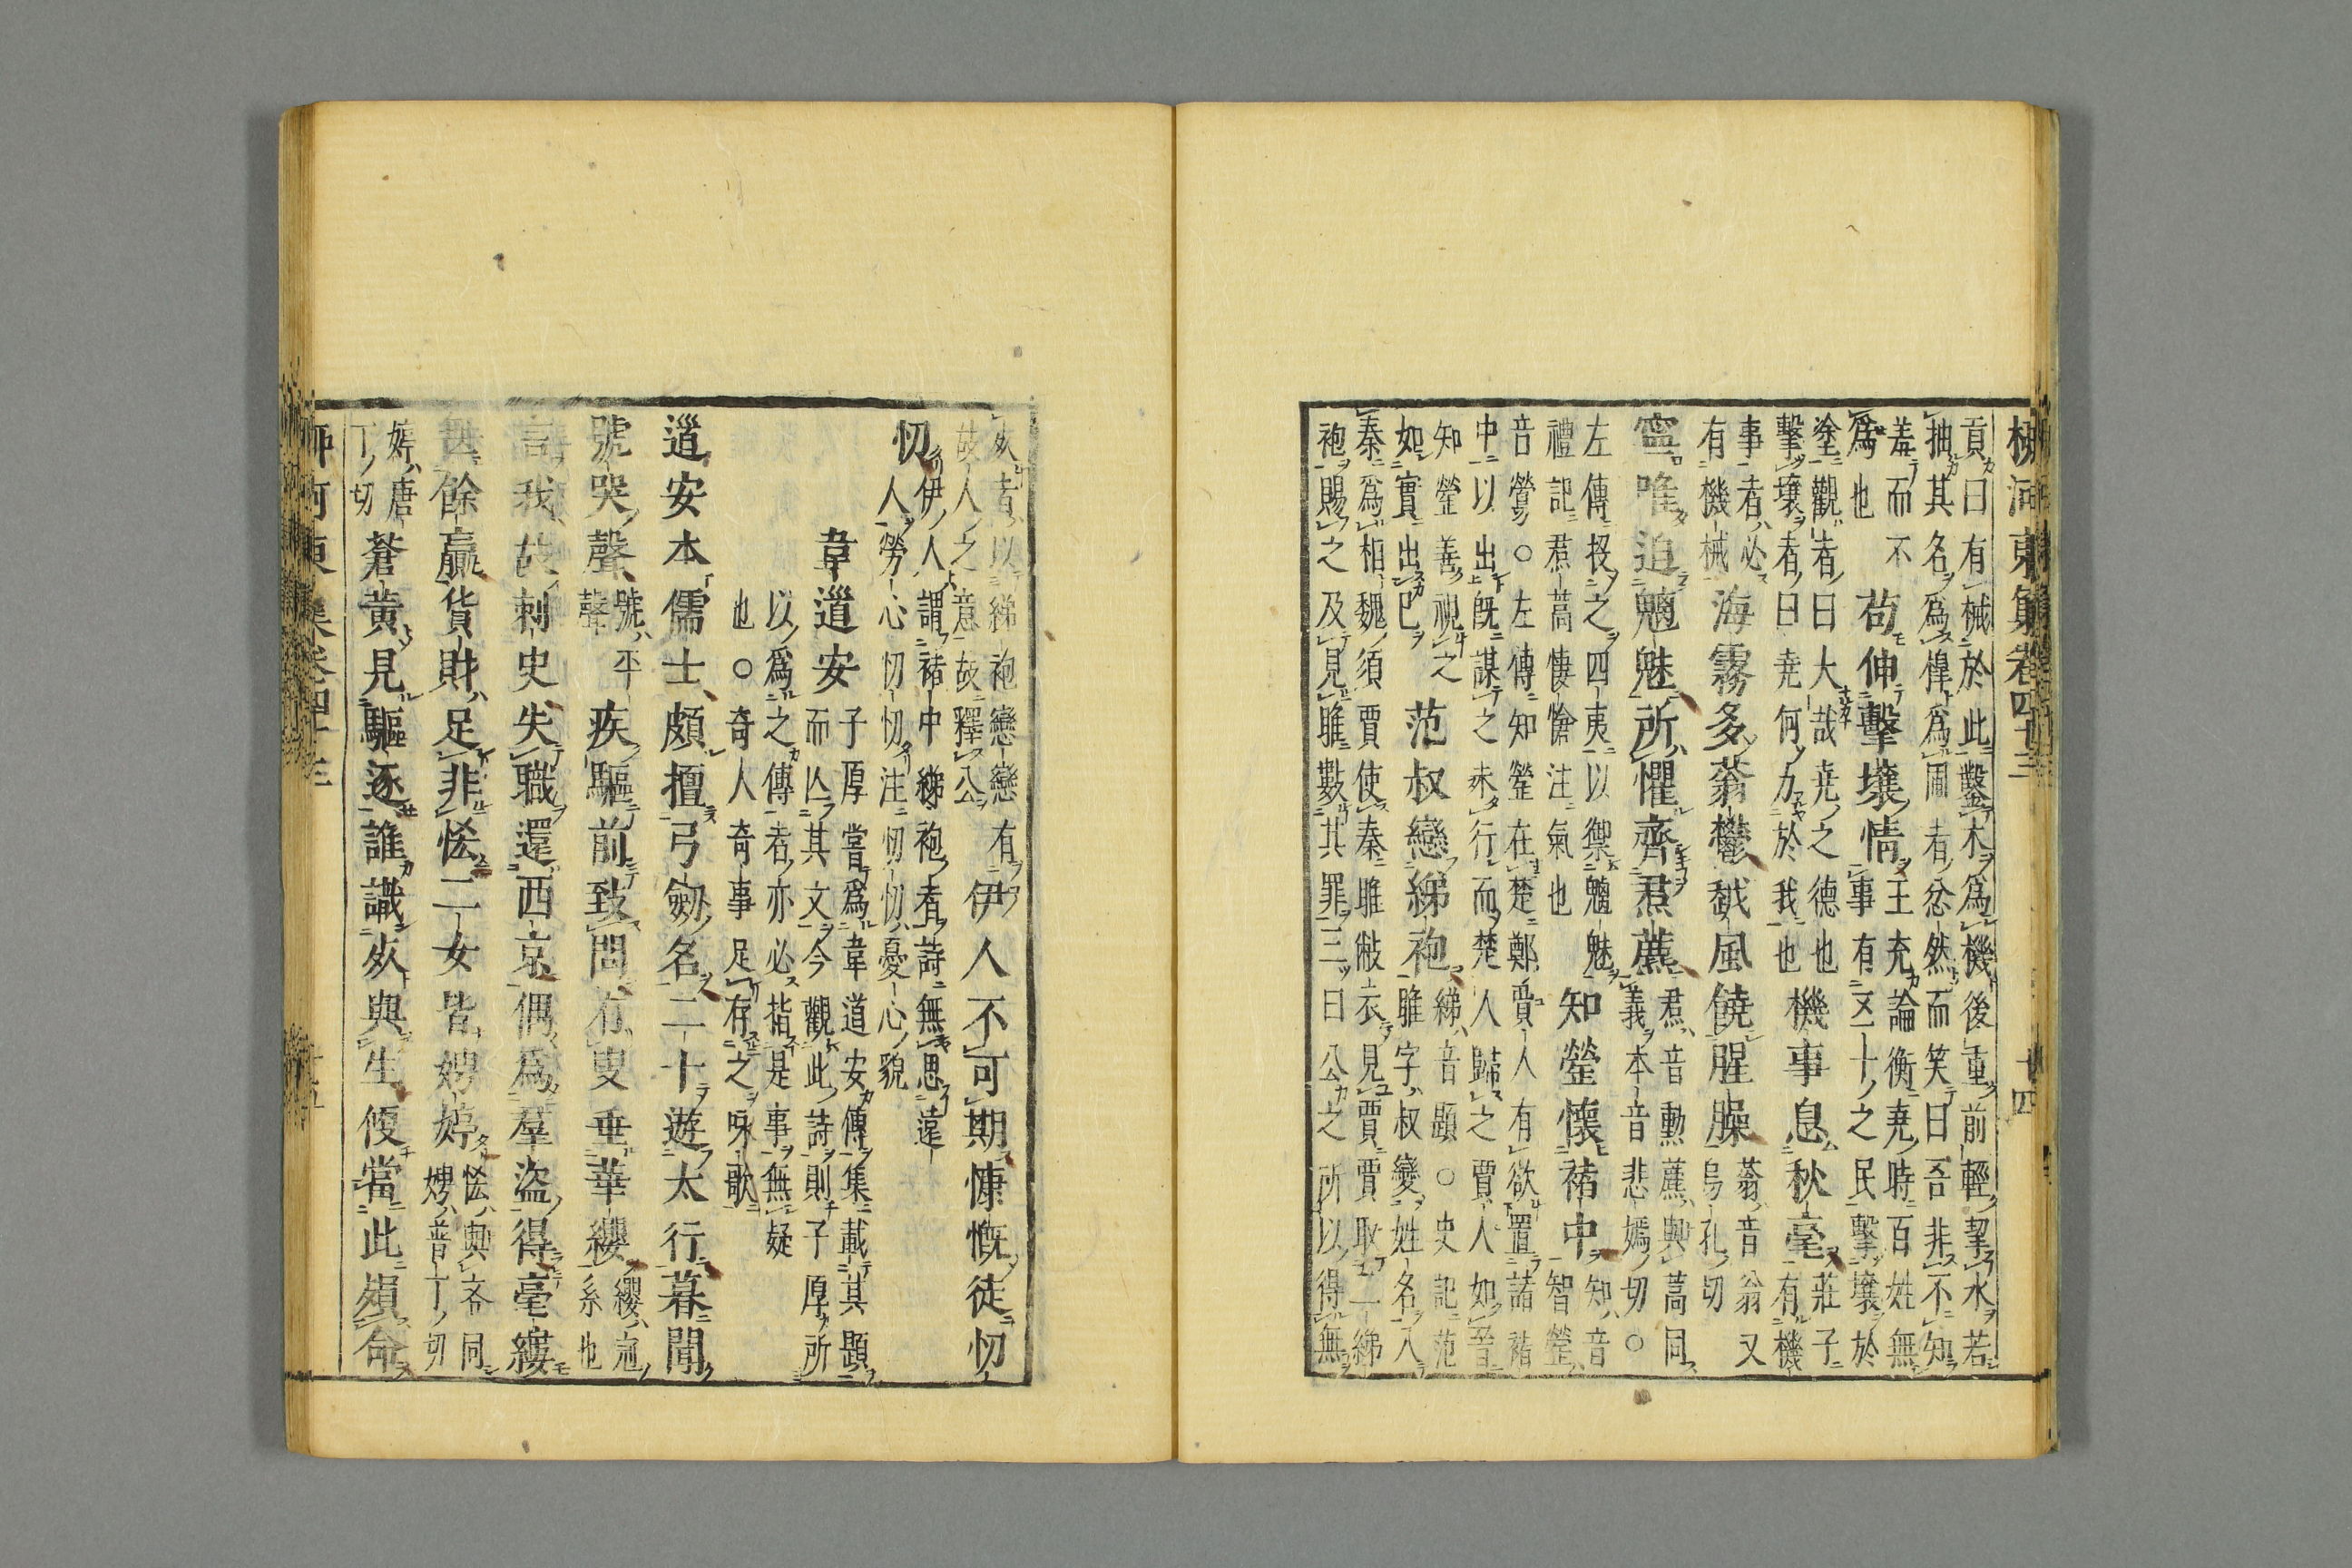 柳河東集卷四十三　十四
貢曰有械於此鑿木爲機後重前輕挈水若
抽其名爲橰爲圃者忿然而笑曰吾非不知
羞而不
爲也
苟伸擊壤情
王充論衡堯時百姓無
事有五十之民擊壤於
塗觀者曰大哉堯之德也
擊壤者曰堯何力於我也
機事息秋毫
莊子
有機
事者必
有機械
海霧多蓊鬱越風饒腥臊
蓊音翁又
烏孔切
寧唯迫魑魅所懼齊焄藨
焄音勳藨與蒿同
義本音悲嫣切○
左傳投之四夷以禦魑魅
禮記焄蒿悽愴注氣也
知罃懷褚中
知音
智罃
音罃○左傳知罃在楚鄭賈人有欲置諸褚
中以出旣謀之未行而楚人歸之賈人如晉
知罃善視之
如實出已
范叔戀綈袍
綈音題○史記范
雎字叔變姓名入
秦爲相魏須賈使秦雎敝衣見賈賈取一綈
袍賜之及見雎數其罪三曰公之所以得無
死者以綈袍戀戀有
故人之意故釋公
伊人不可期慷慨徒忉
忉
伊人謂褚中綈袍者詩無思遠
人勞心忉忉注忉忉憂心貌
韋道安
子厚嘗爲韋道安傳集載其題
而亾其文今觀此詩則子厚所
以爲之傳者亦必指是事無疑
也○奇人奇事足存之咏歌
道安本儒士頗擅弓劒名二十遊太行暮聞
號哭聲
號平
聲
疾驅前致問有叟垂華纓
纓冠
系也
言我故刺史失職還西京偶爲羣盜得毫縷
無餘贏貨財足非恡二女皆娉婷
恡與吝同
娉普丁切
婷唐
丁切
蒼黄見驅逐誰識死與生便當此殞命
柳河東集卷四十三　十五